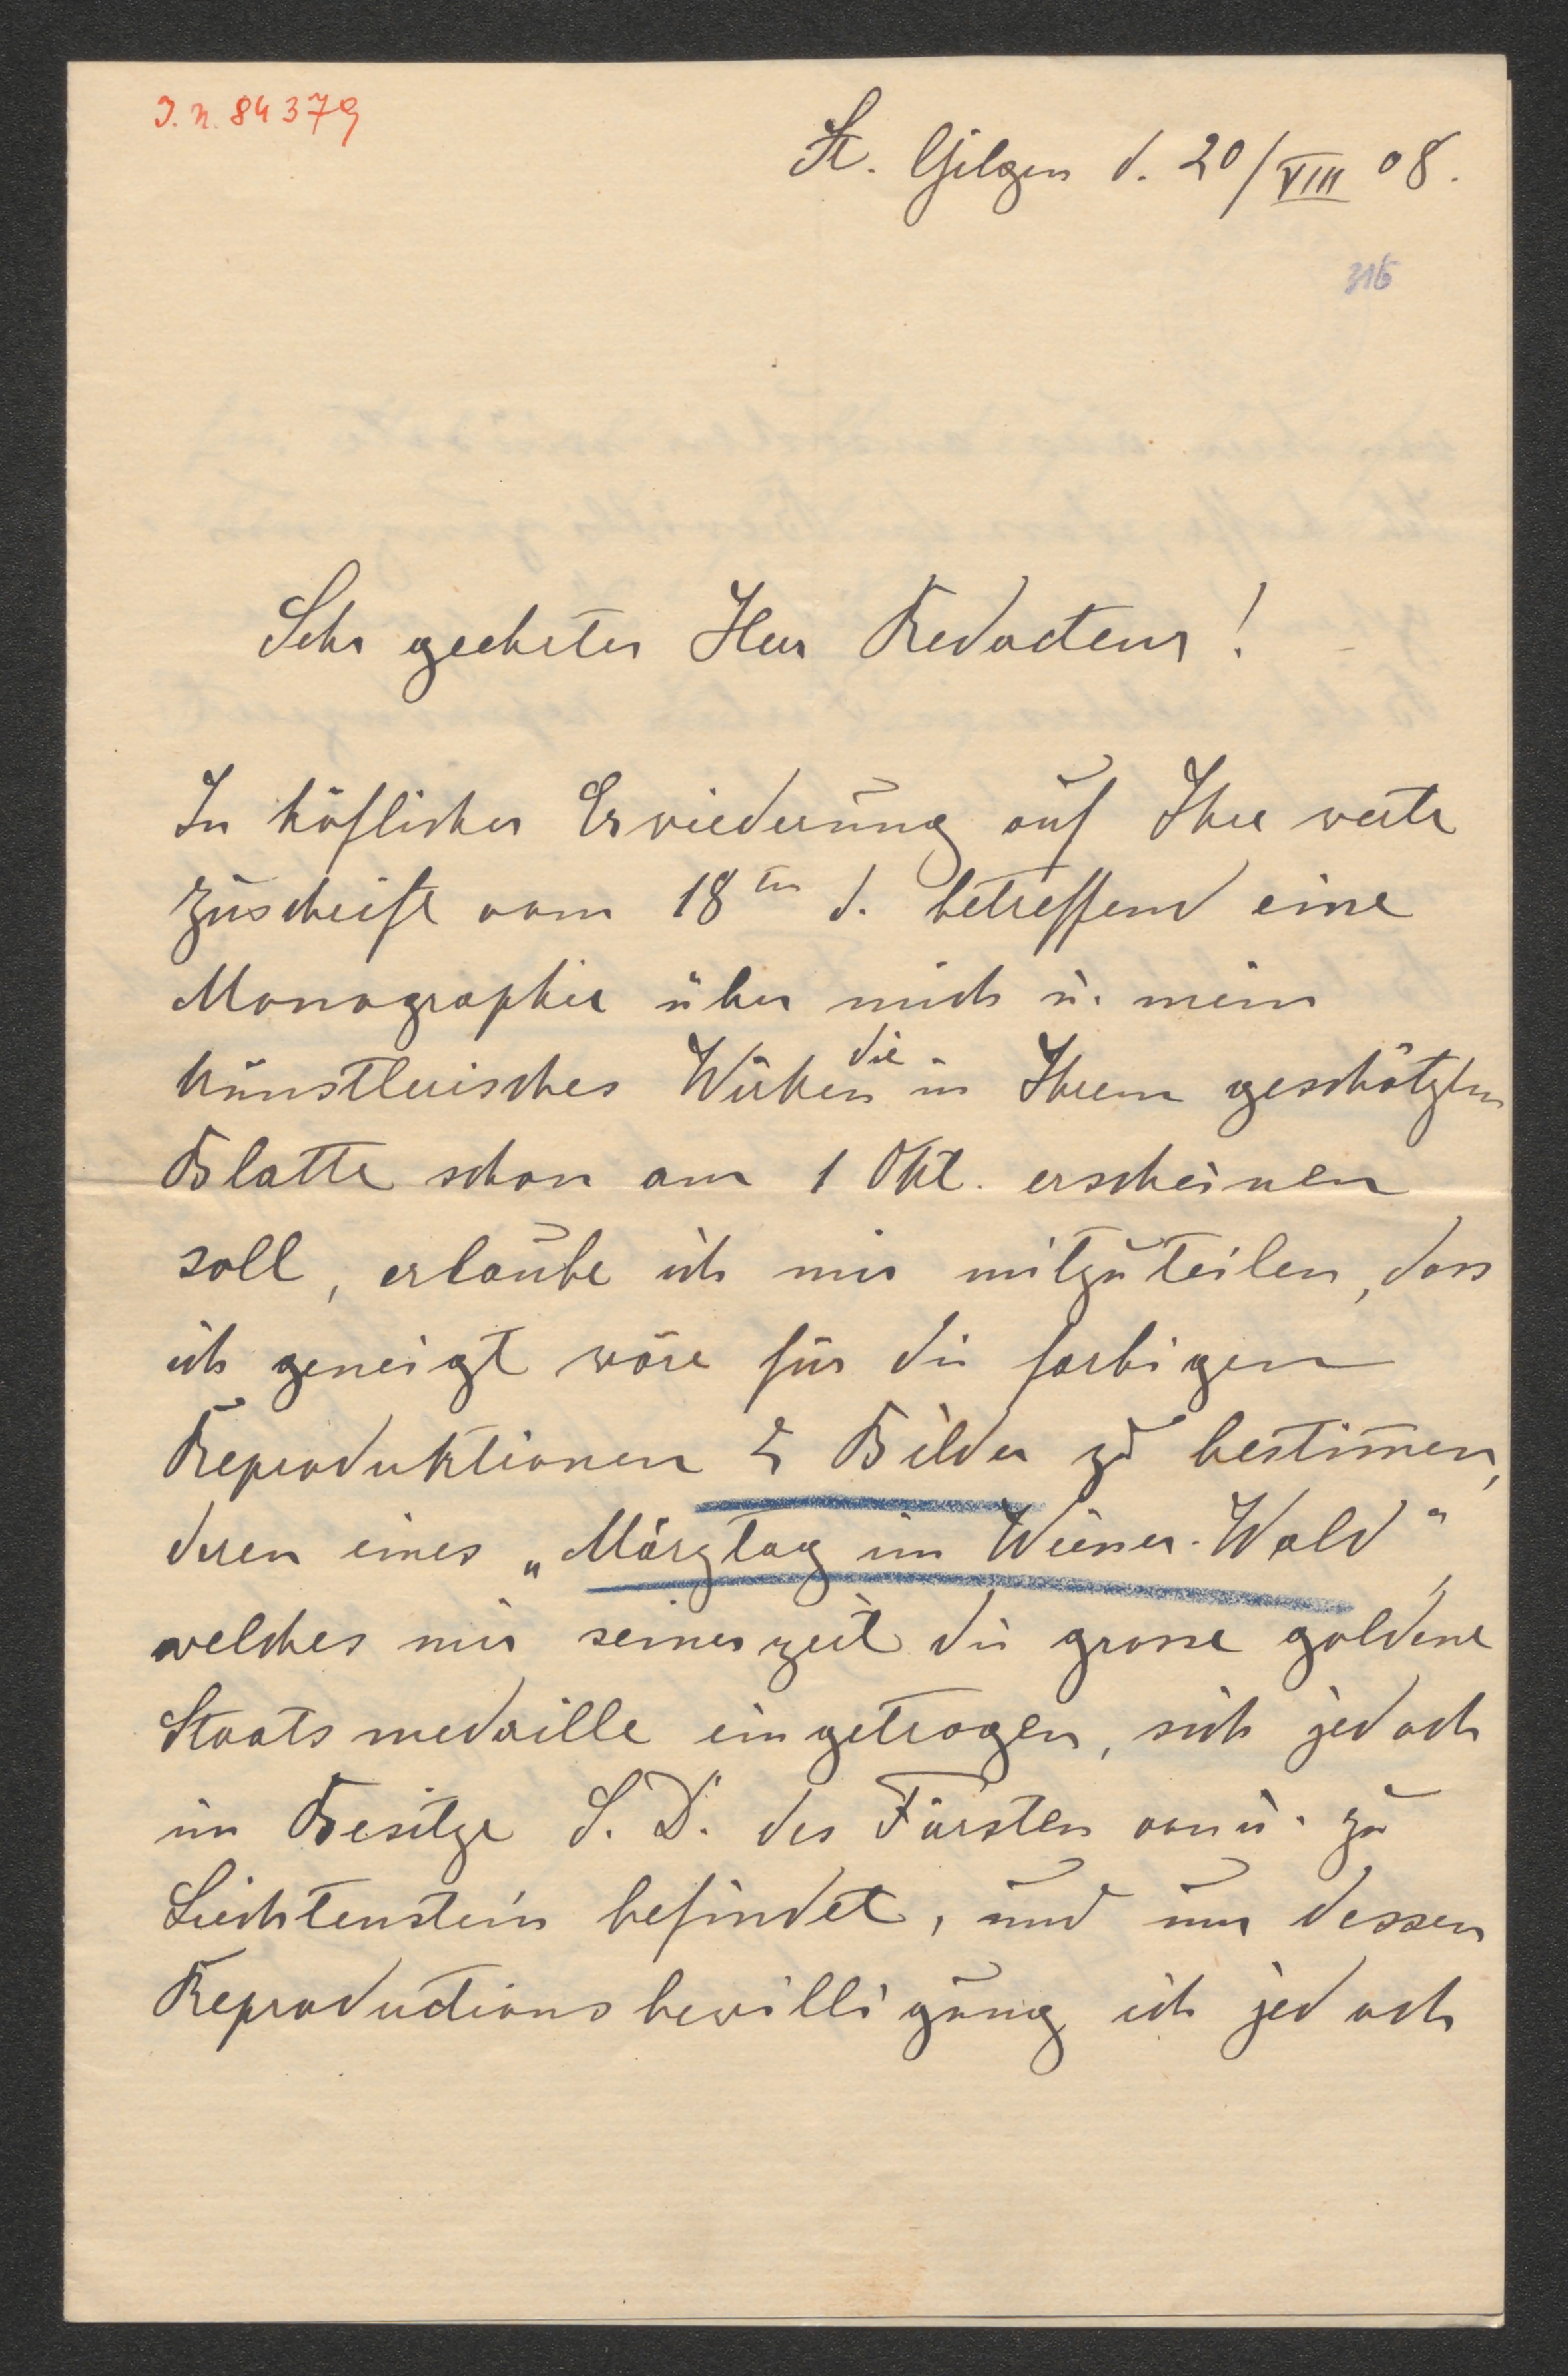 I. N. 84379
St. Gilgen d. 20/VIII 08.
316
Sehr geehrter Herr Redacteur!
In höflicher Erwiederung auf Ihre werte
Zuschrift vom 18ten d. betreffend eine
Monographie über mich u. mein
künstlerisches Wirken die in Ihrem geschätzten
Blatte schon am 1 Okt. erscheinen
soll, erlaube ich mir mitzuteilen, dass
ich geneigt wäre für die farbigen
Reproduktionen 2 Bilder zu bestimen,
deren eines „Märztag im Wiener-Wald",
welches mir seinerzeit die grosse goldene
Staatsmedaille eingetragen, sich jedoch
im Besitze S. D. des Fürsten von u. zu
Liechtenstein befindet, und um dessen
Reproductionsbewilligung ich jedoch